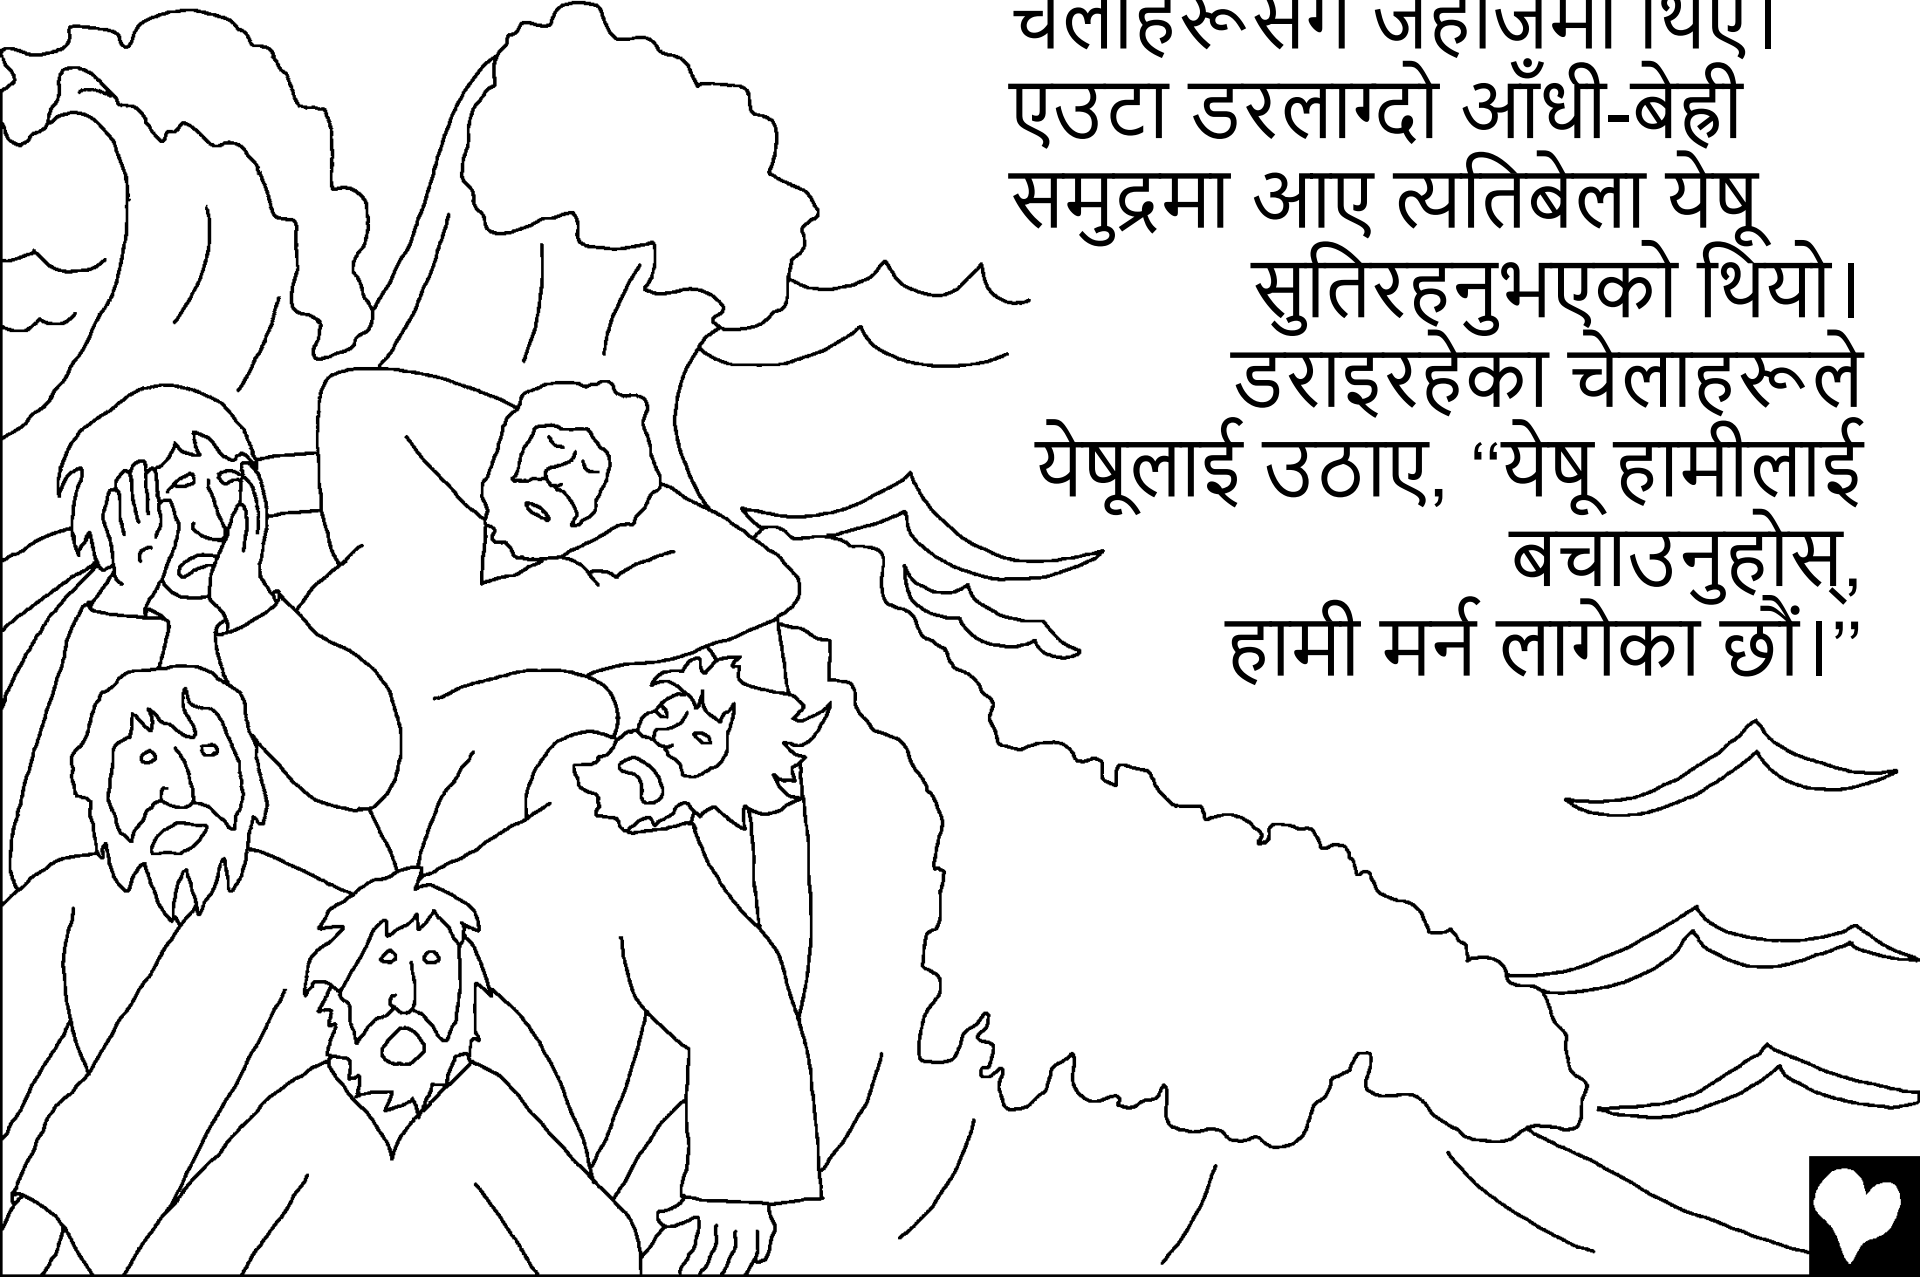 चेलाहरूसँग जहाजमा थिए।
एउटा डरलाग्दो आँधी-बेह्री
समुद्रमा आए त्यतिबेला येषू
सुतिरहनुभएको थियो।
डराइरहेका चेलाहरूले
येषूलाई उठाए, “येषू हामीलाई
बचाउनुहोस्,
हामी मर्न लागेका छौं।”